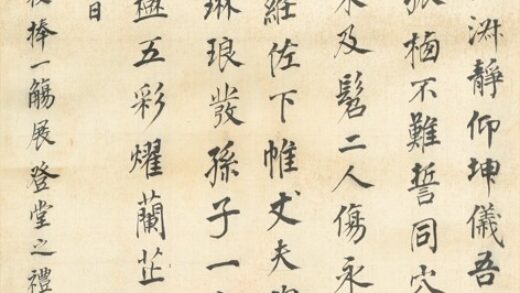 渊靜仰坤儀吾
不難誓同穴
及髫二人傷永
佐下帷丈夫
琳琅發孫子一
五彩耀蘭芷
日
捧一觴展登堂之禮